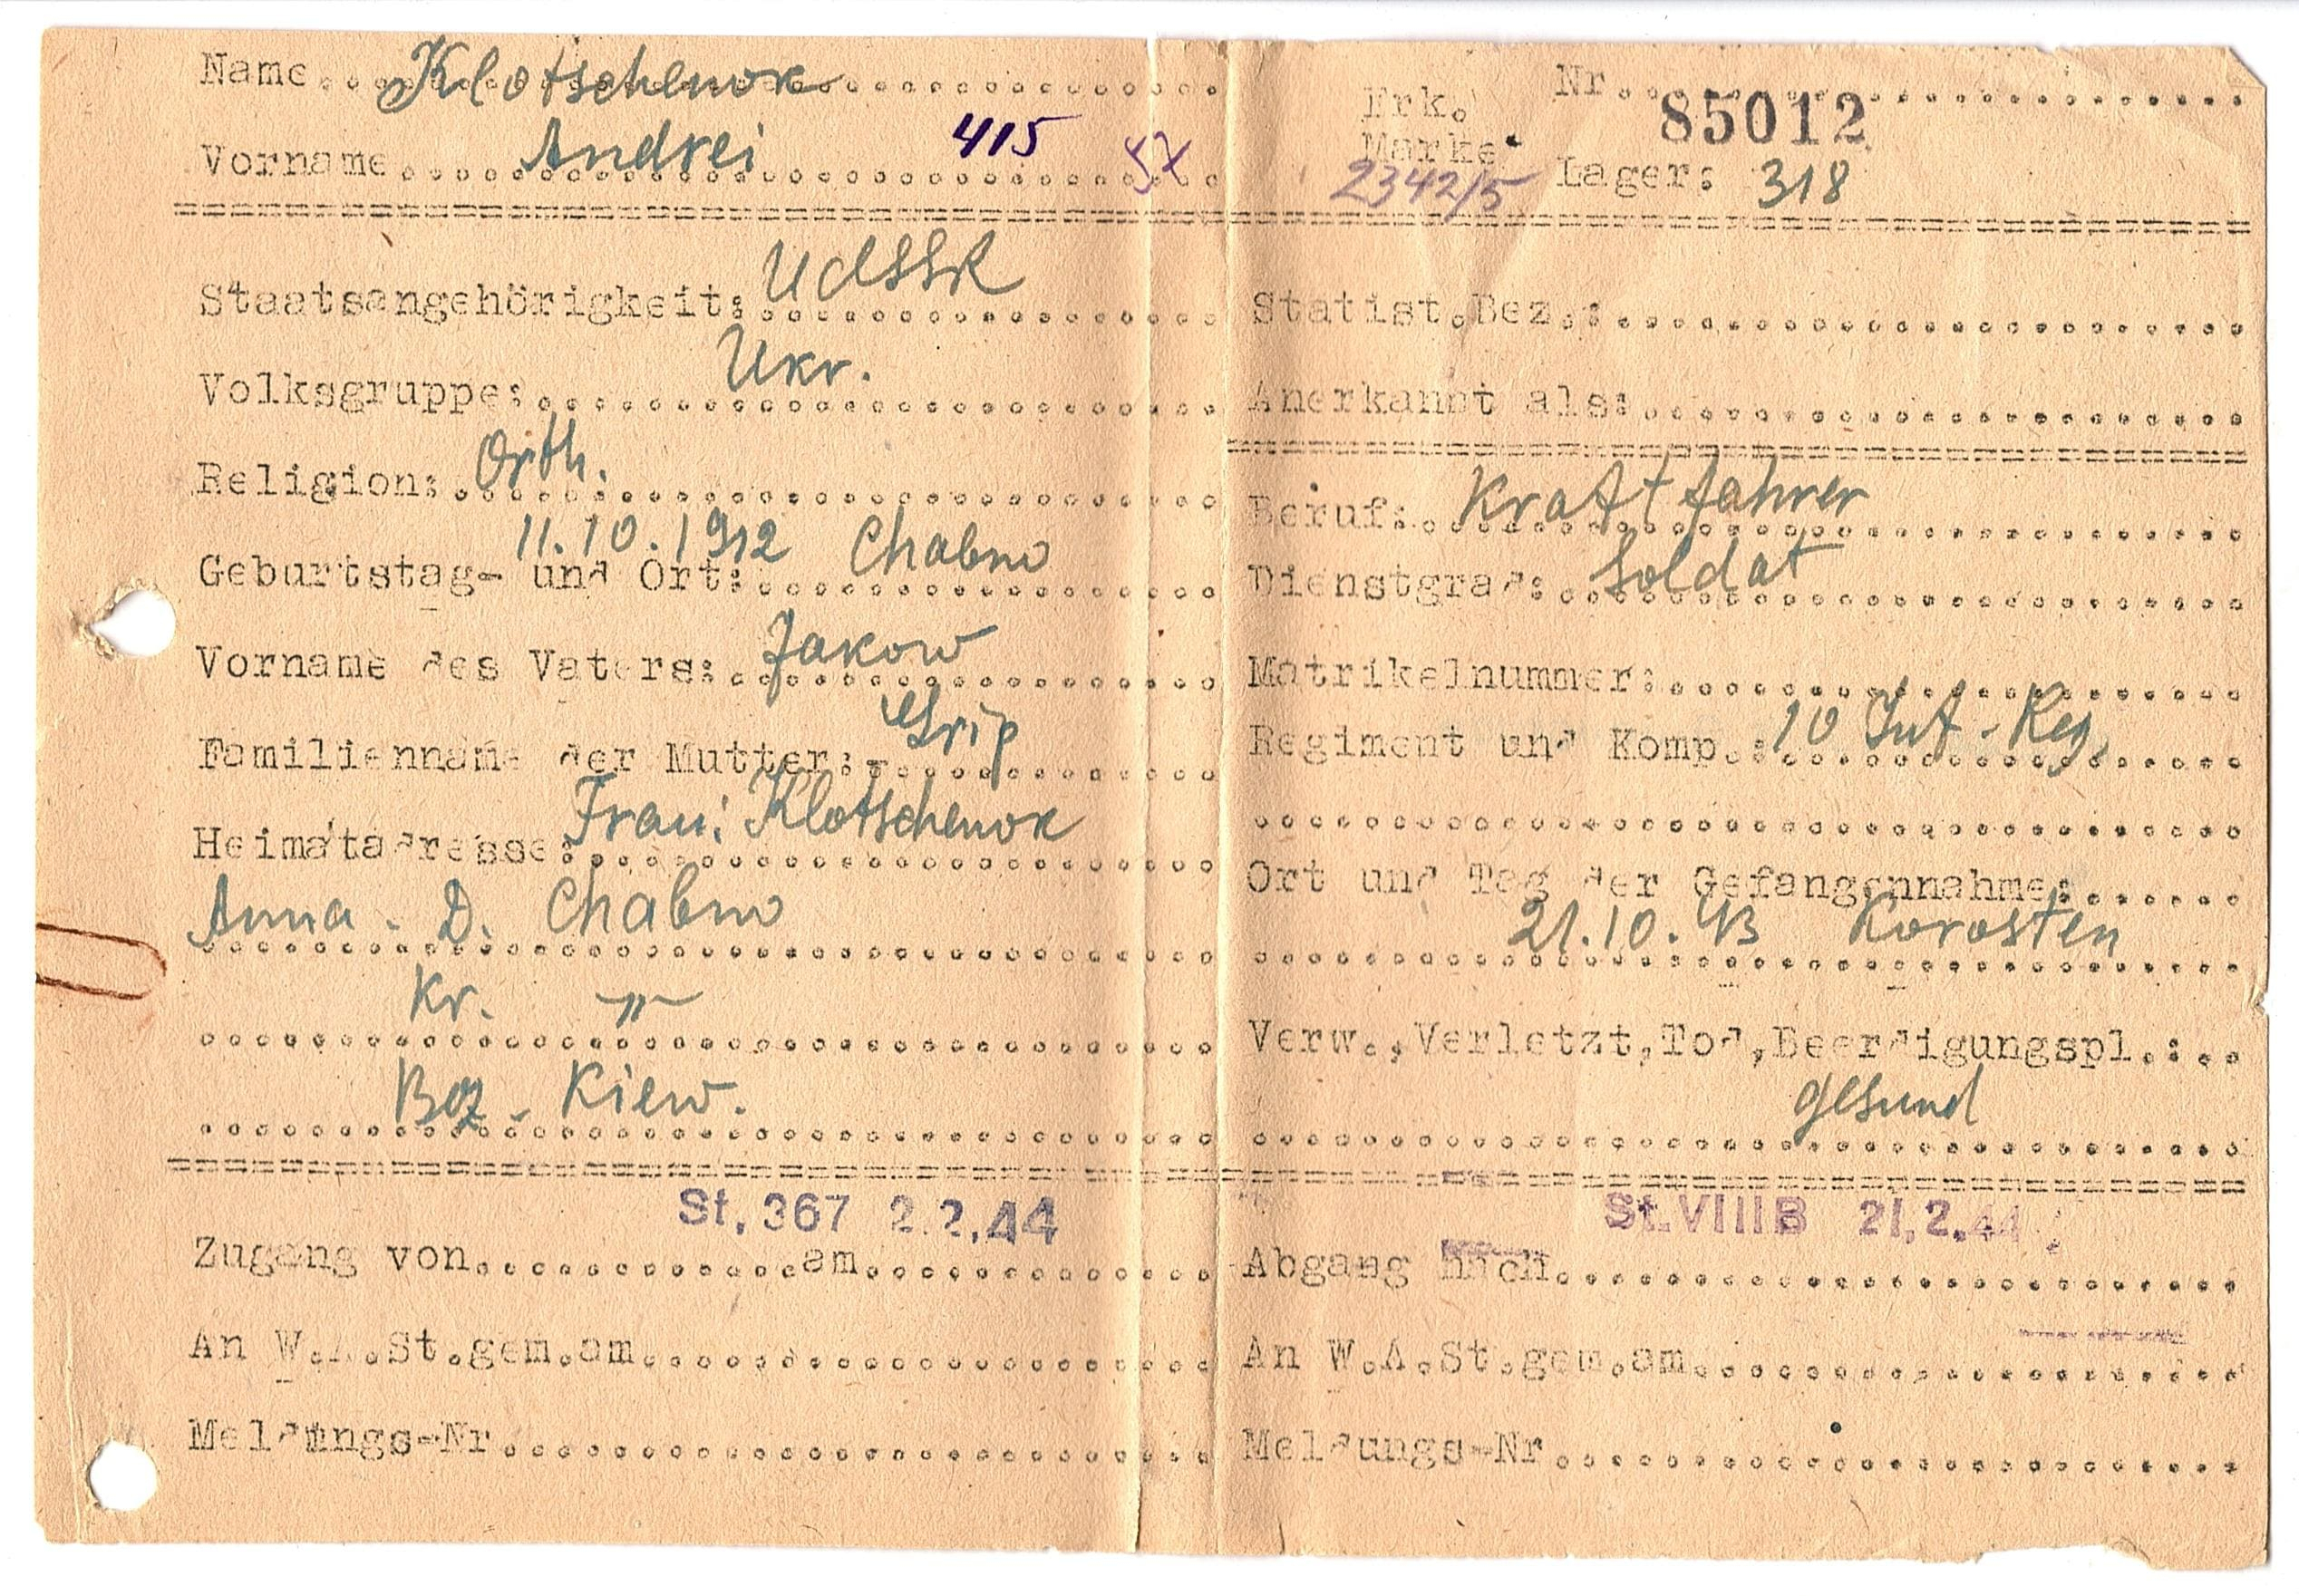 Name Klotschenok
Vorname Andrei 415
Erk. Marke 2342/5
Nr. 85012
Lager: 318
Staatsangehörigkeit: UdSSR
Volksgruppe: Ukr.
Religion: Orth.
Geburtstag- und Ort: 11.10.1912 Chabno
Vorname des Vaters: Jakow
Familienname der Mutter: Grip
Heimatadresse: Frau: Klotschenok
Anna - D. Chabno
Kr. -"-
Bez - Kiew.
Statist.Bez.:
Anerkannt als:
Beruf: Kraftfahrer
Dienstgrad: Soldat
Matrikelnummer:
Regiment und Komp.: 10 Inf - Reg.
Ort und Tag der Gefangennahme:
21.10.43 Korosten
Verw.,Verletzt,Tod,Beerdigungspl.:
gesund
St. 367 2.2.44
Zugang von am
An W.A.St.gem.am
Meldungs-Nr
St. VIII B 21.2.44
Abgang nach
An W.A.St.gem.am
Meldungs-Nr